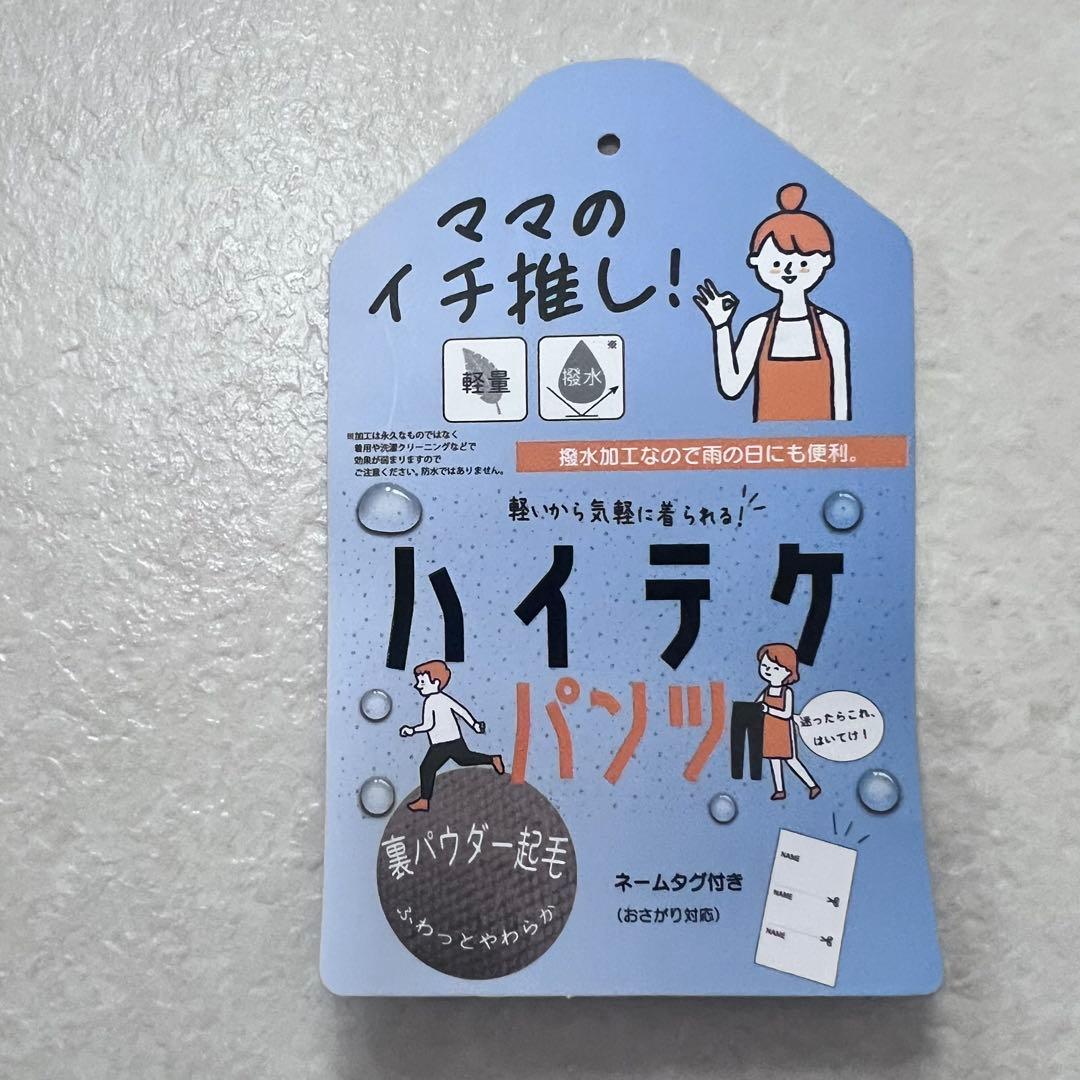 ママの
イチ推し!
軽量
撥水
※
※加工は永久なものではなく
着用や洗濯クリーニングなどで
効果が弱まりますので
ご注意ください。防水ではありません。
撥水加工なので雨の日にも便利。
軽いから気軽に着られる!
ハイテク
パンツ
迷ったらこれ、
はいてけ!
裏パウダー起毛
ふわっとやわらか
ネームタグ付き
(おさがり対応)
NAME
NAME
NAME